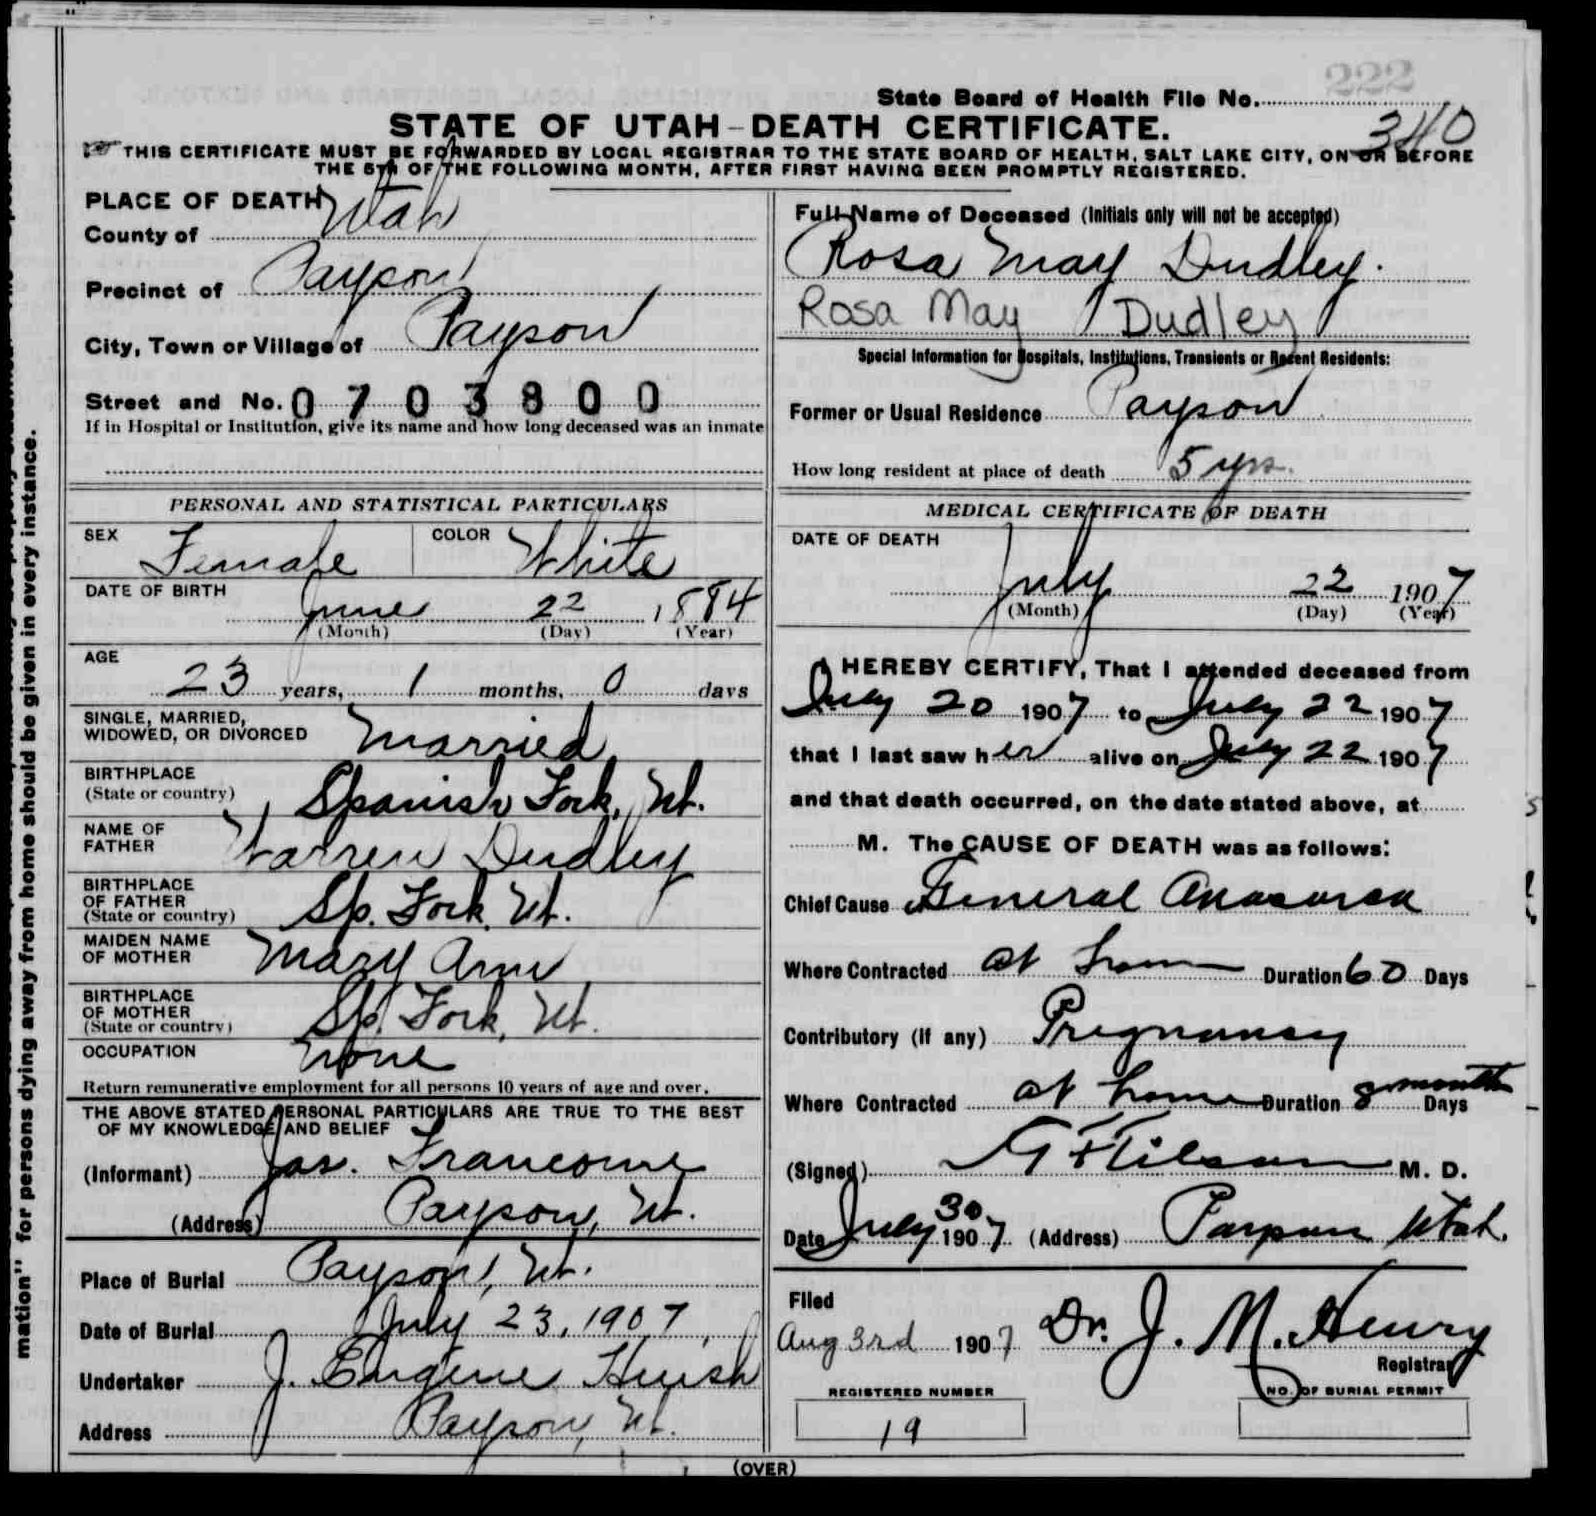 222
State Board of Health File No.
340
STATE OF UTAH-DEATH CERTIFICATE.
THIS CERTIFICATE MUST BE FORWARDED BY LOCAL REGISTRAR TO THE STATE BOARD OF HEALTH, SALT LAKE CITY, ON OR BEFORE
THE 5TH OF THE FOLLOWING MONTH, AFTER FIRST HAVING BEEN PROMPTLY REGISTERED.
PLACE OF DEATH
County of Utah
Precinct of Payson
City, Town or Village of Payson
Street and No. 0703800
If in Hospital or Institution, give its name and how long deceased was an inmate
PERSONAL AND STATISTICAL PARTICULARS
SEX Female COLOR White
DATE OF BIRTH
June 22 1884
(Month) (Day) (Year)
AGE
23 years, 1 months, 0 days
SINGLE, MARRIED,
WIDOWED, OR DIVORCED Married
BIRTHPLACE
(State or country) Spanish Fork, Ut.
NAME OF
FATHER Warren Dudley
BIRTHPLACE
OF FATHER
(State or country) Sp. Fork, Ut.
MAIDEN NAME
OF MOTHER Mary Ann
BIRTHPLACE
OF MOTHER
(State or country) Sp. Fork, Ut.
OCCUPATION None
Return remunerative employment for all persons 10 years of age and over.
THE ABOVE STATED PERSONAL PARTICULARS ARE TRUE TO THE BEST
OF MY KNOWLEDGE AND BELIEF
(Informant) Jas. Francome
(Address) Payson, Ut.
Place of Burial Payson, Ut.
Date of Burial July 23, 1907
Undertaker J. Eugene Huish
Address Payson, Ut.
Full Name of Deceased (Initials only will not be accepted)
Rosa May Dudley.
Rosa May Dudley
Special Information for Hospitals, Institutions, Transients or Recent Residents:
Former or Usual Residence Payson
How long resident at place of death 5 yrs.
MEDICAL CERTIFICATE OF DEATH
DATE OF DEATH
July 22 1907
(Month) (Day) (Year)
I HEREBY CERTIFY, That I attended deceased from
July 20 1907 to July 22 1907
that I last saw her alive on July 22 1907
and that death occurred, on the date stated above, at
M. The CAUSE OF DEATH was as follows:
Chief Cause General Anasarca
Where Contracted at home Duration 60 Days
Contributory (if any) Pregnancy
Where Contracted at home Duration 8 months Days
(Signed) M. D.
Date July 30 1907 (Address) Payson Utah.
Filed
Aug 3rd 1907 Dr. J. M. Henry
Registrar
REGISTERED NUMBER NO. OF BURIAL PERMIT
19
(OVER)
mation" for persons dying away from home should be given in every instance.